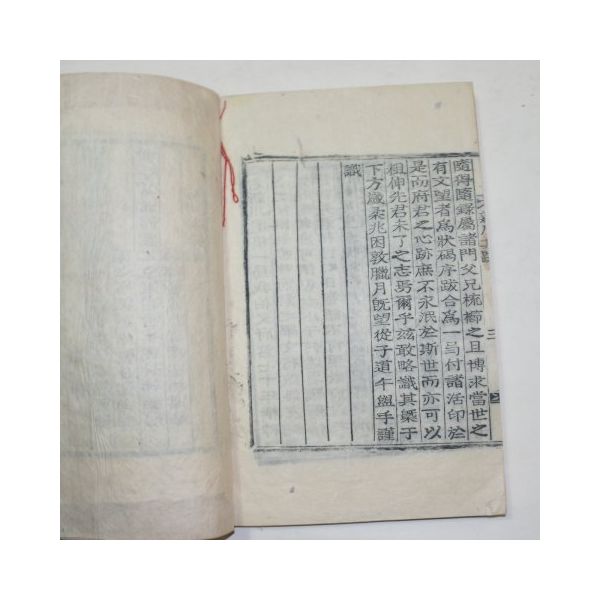 隨得隨錄屬諸門父兄梳櫛之且博求當世之
有文望者爲狀碣序跋合爲一弓付諸活印於
是向府君之心跡庶不永泯於斯世而亦可以
粗伸先君未了之志焉爾乎玆敢略識其槩于
下方歲柔兆困敦臘月旣望從子道午盥手謹
識
三